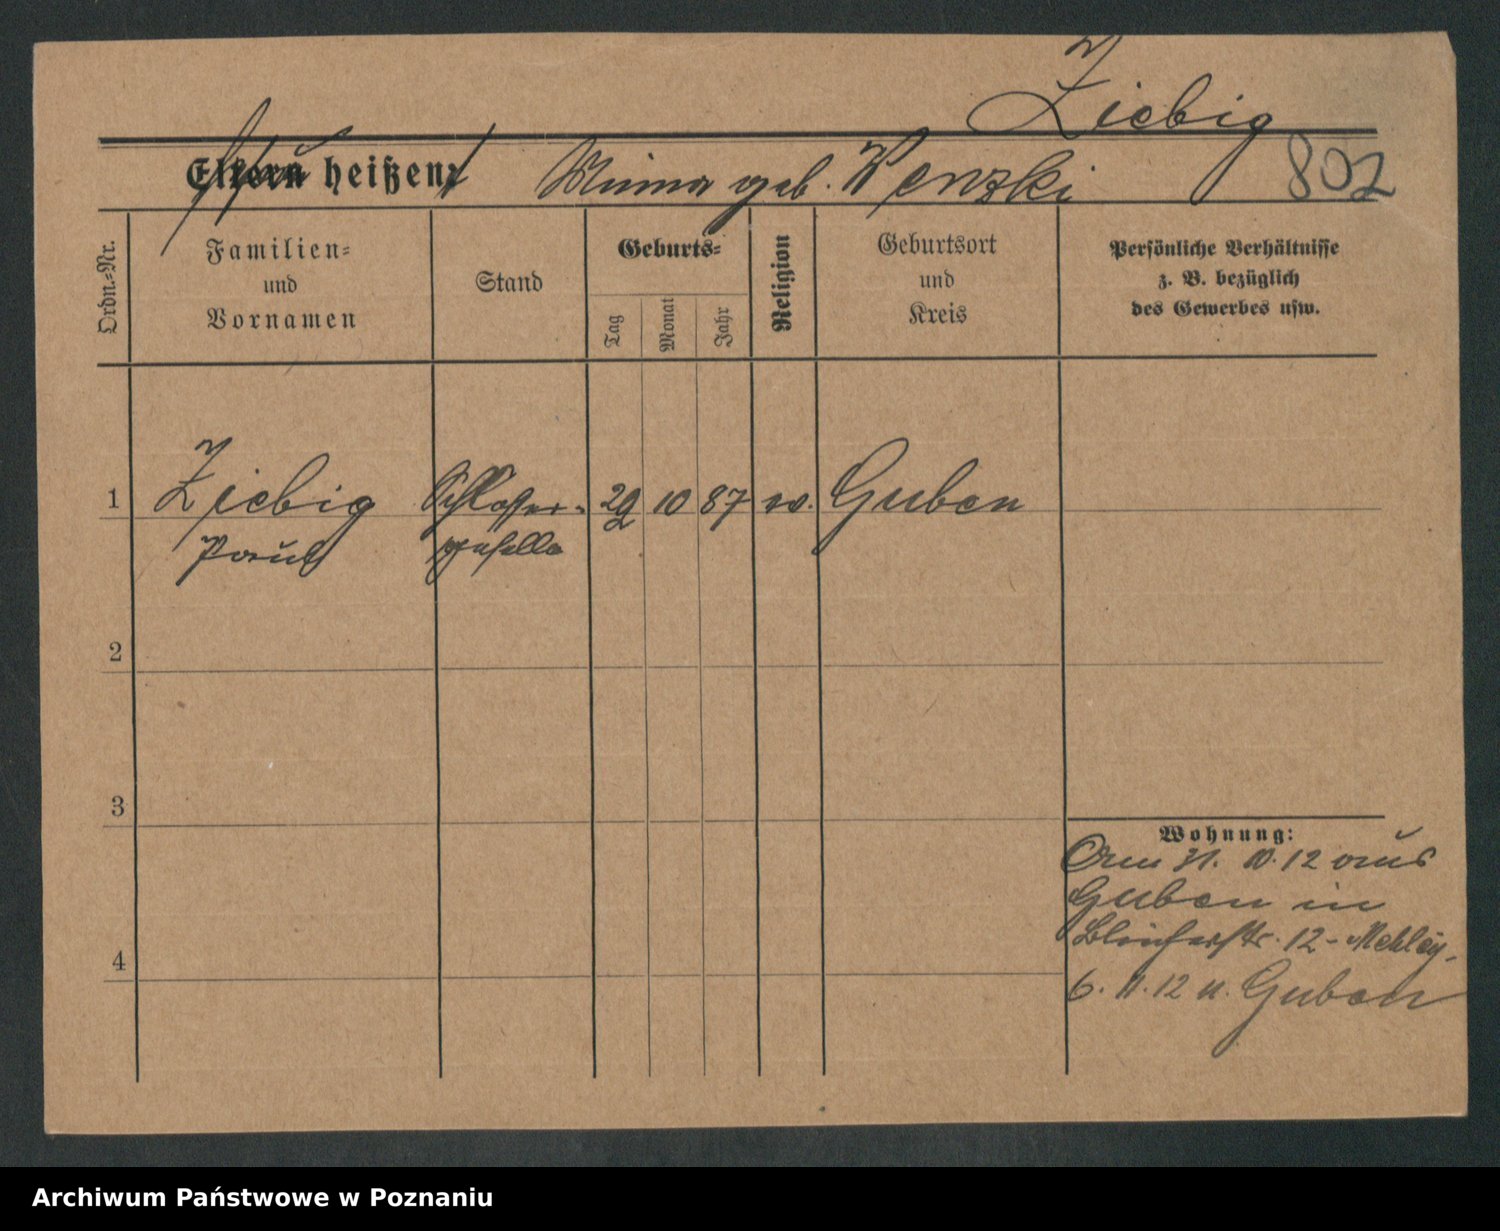 Ziebig
Eltern heißen: Minna geb. Wenzki
802
Ordn.-Nr.
Familien-
und
Vornamen
Stand
Geburts-
Tag
Monat
Jahr
Religion
Geburtsort
und
Kreis
Persönliche Verhältnisse
z. B. bezüglich
des Gewerbes usw.
1 Ziebig Schlosser- 29 10 87 ev. Guben
Paul geselle
2
3
Wohnung:
Am 31. 10. 12 aus
Guben in
Bleicherstr. 12-
4
6. 11. 12 n. Guben
Archiwum Państwowe w Poznaniu